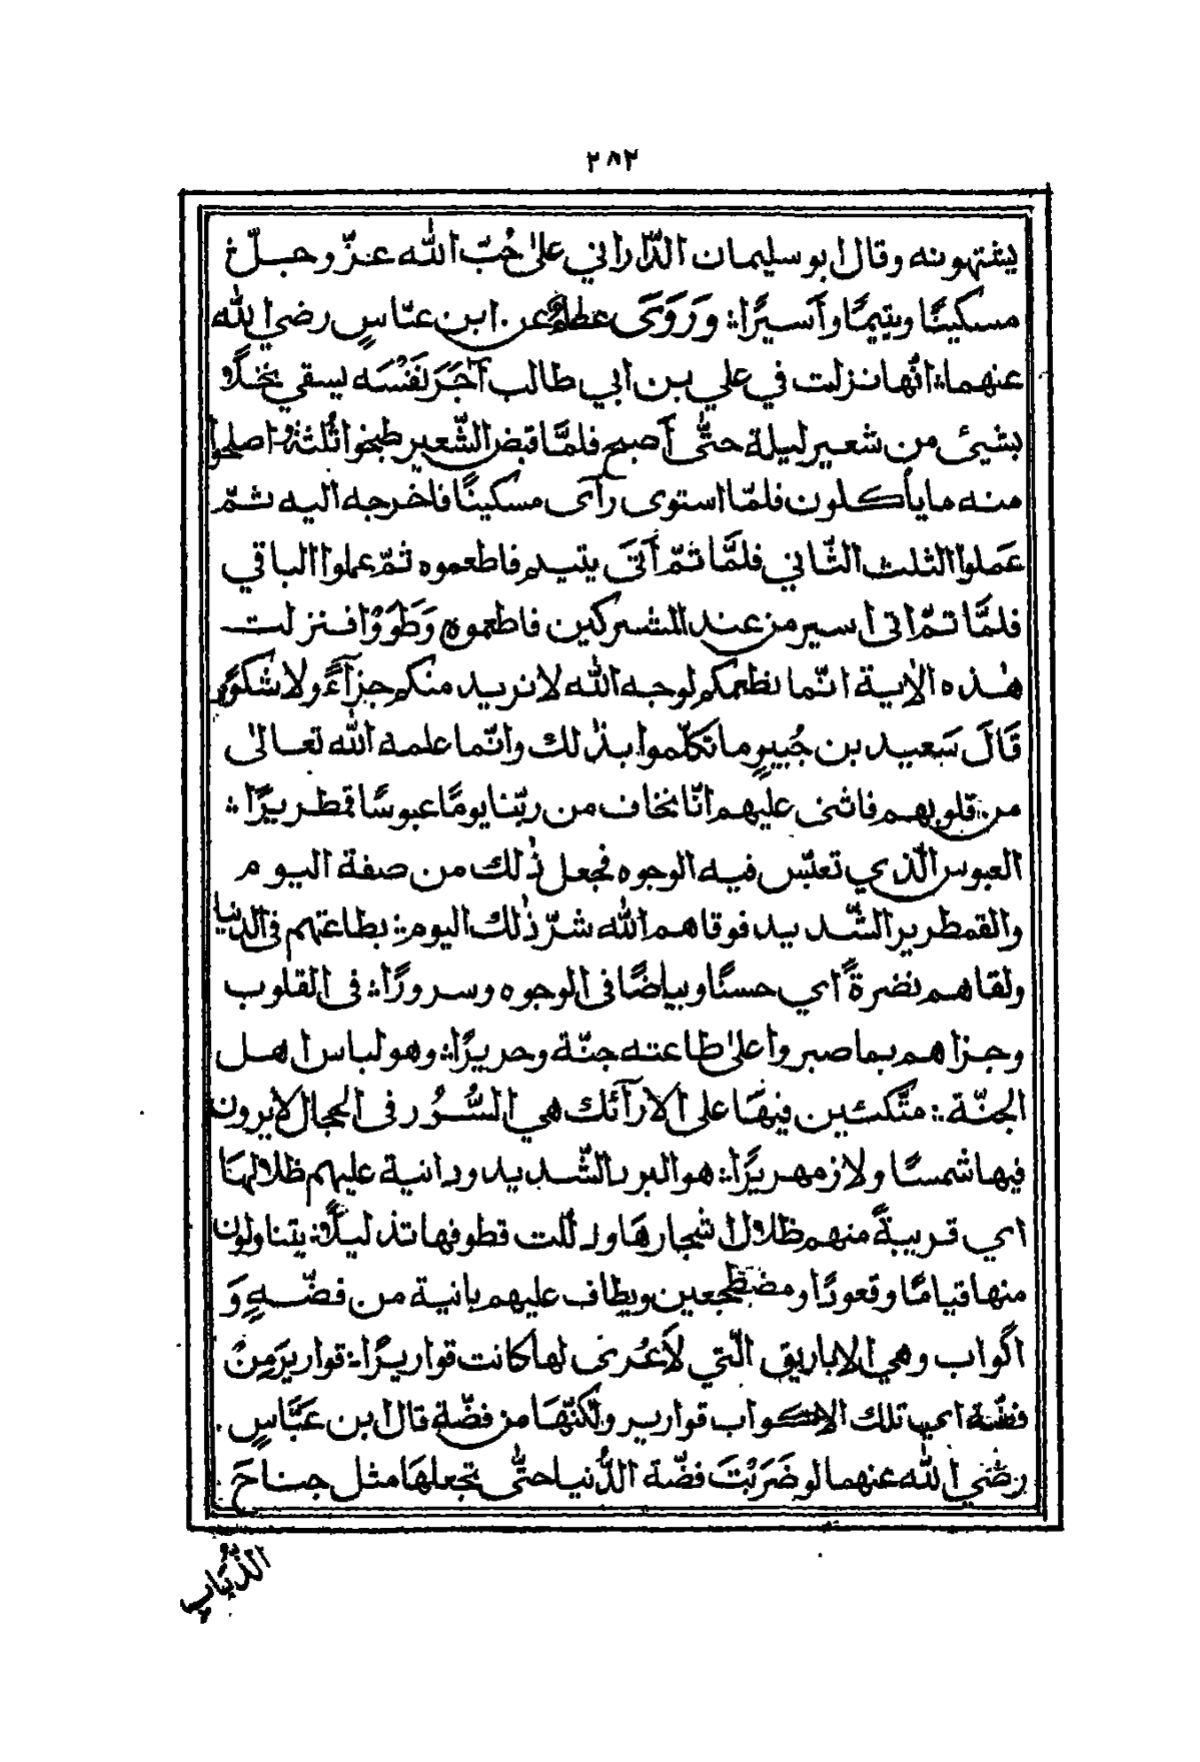 ٢٨٢
يشتهونه وقال ابو سليمان الدّاراني على حُبّ الله عزّ وجلّ
مسكينًا ويتيمًا وأسيرًا ؞ وَرَوَى عطاءٌ عن ابن عبّاسٍ رضي الله
عنهما ؞ انّها نزلت في علي بن ابي طالب آجَرَ نَفْسَه يسقي نخلًا
بشيئ من شعير ليلة حتّى أصبح فلمَّا قبض الشّعير طبخوا ثُلثهُ اصلحوا
منه ما يأكلون فلمّا استوى رآى مسكينًا فاخرجه اليه ثمّ
عَملوا الثلث الثّاني فلمَّا تمّ أتَى يتيم فاطعموه ثمّ عملوا الباقي
فلمَّا تمّ اتى اسير من عند المشركين فاطعموهِ وَطَوَوْا فنزلت
هٰذه الاٰية انّما نطعمكم لوجه الله لا نريد منكم جزآءً ولا شكورًا
قَالَ سَعيد بن جُبيرٍ ما تكلّموا بذٰلك وانّما علمه الله تعالىٰ
من قلوبهم فاثنى عليهم انّا نخاف من ربّنا يومًا عبوسًا قمطريرًا ؞
العبوس الّذي تعبّس فيه الوجوه فجعل ذٰلك من صفة اليوم
والقمطرير الشّديد فوقاهم الله شرّ ذٰلك اليوم ؞ بطاعتهم فى الدنيا
ولقاهم نضرةً اي حسنًا وبياضًا فى الوجوه وسرورًا ؞ فى القلوب
وجزاهم بما صبروا علىٰ طاعته جنّة وحريرًا ؞ وهو لباس اهل
الجنّة ؞ متّكئين فيهَا على الارآئك هي السُّرُر فى الحجال لا يرون
فيها شمسًا ولا زمهريرًا ؞ هو البرد الشّديد ودانية عليهم ظلالهَا
اي قريبةً منهم ظلال اشجارهَا وذللت قطوفها تذليلًا ؞ يتناولون
منها قيامًا وقعودًا ومضطجعين ويطاف عليهم بانية من فضّةٍ وَ
اكواب وهي الاباريق الّتي لَا عُرى لها كانت قواريرًا ؞ قواريرَ مِنْ
فضّة اي تلك الاكواب قوارير ولكنّهَا من فضّةٍ قال ابن عَبَّاسٍ
رضي الله عنهما لو ضَرَبْتَ فضّة الدُّنيا حتّى تجعلهَا مثل جناحَ
الذُّبَاب